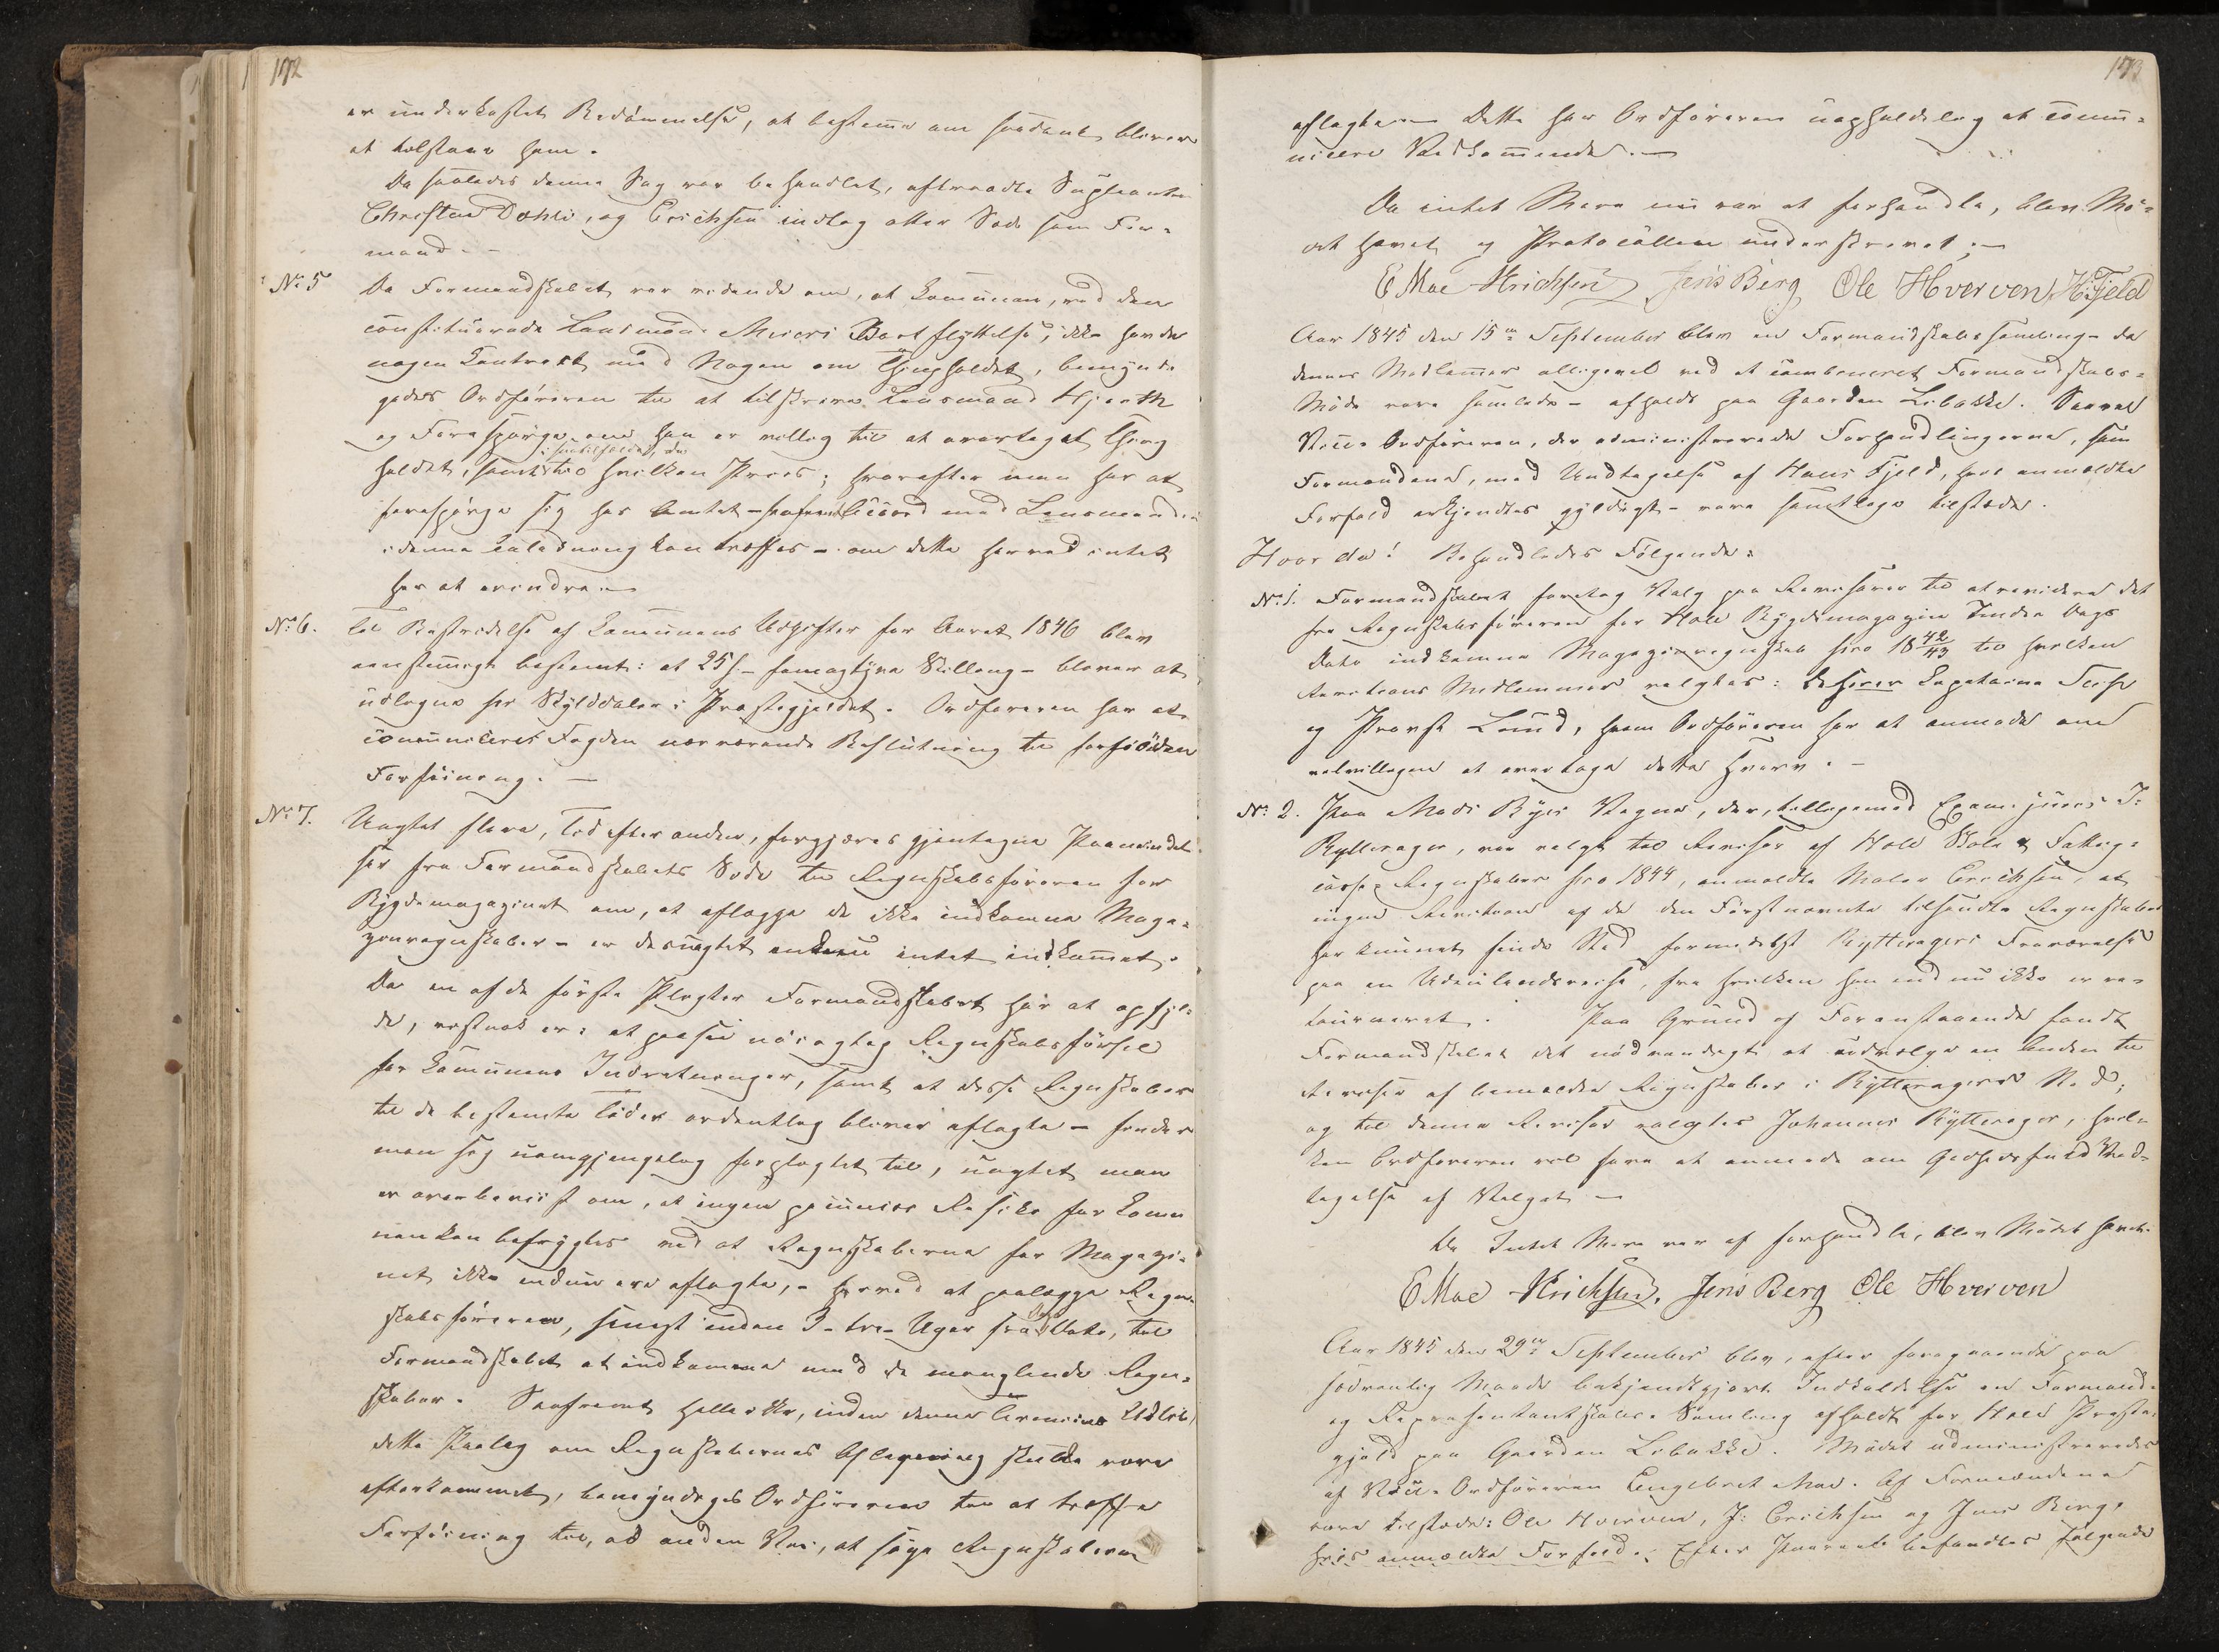 172
er underkastet Bedømmelse, at bestemme om saadant bliver
at tilstaae ham.
Da saaledes denne Sag var behandlet, aftraadte Supleanten
Christen Dæhli, og Erichsen indtog atter Sæde som For-
mand. -
No 5 Da Formandskabet var vidende om, at Communen, ved den
constituerede Lensmand Meiers Bortflyttelse, ikke havde
nogen Contract med Nogen om Thingholdet, bemyndi-
gedes Ordføreren til at tilskrive Lensmand Hjorth
og Forespørge om han er villig til at overtage Thing
holdet, samt i saa tilfælde, for hvilken Priis; hvorefter man har at
forespørge sig hos Amtet - saafremt Accord med Lensmanden
i denne Anledning kan træffes - om dette herved intet
har at erindre. -
No 6. Til Bestridelse af Communens Udgifter for Aaret 1846 blev
eenstemmigt bestemt: at 25 s - femogtyve Skilling - bliver at
udlignes pr Skylddaler i Præstegjeldet. Ordføreren har at
communicere Fogden nærværende Beslutning til fornøden
Forføining. -
No 7. Uagtet flere, Tid efter anden, forgjæves gjentagne Paamindel-
ser fra Formandskabets Side til Regnskabsføreren for
Bygdemagazinet om, at aflægge de ikke indkomne Maga-
zinregnskaber - er desuagtet endnu intet indkommet.
Da en af de første Pligter Formandskabet har at opfyl-
de, vistnok er: at paasee nøiagtig Regnskabsførsel
for Communens Indretninger, samt at disse Regnskaber
til de bestemte Tider ordentlig bliver aflagte - finder
man sig uomgjængelig forpligtet til, uagtet man
er overbeviist om, at ingen pecuniær Risiko for Commu
nen kan befrygtes ved at Regnskaberne for Magazi-
net ikke endnu ere aflagte, - herved at paalægge Regn-
skabsføreren, senest inden 3 - tre - Uger fra Dato, til
Formandskabet at indkomme med de manglende Regn-
skaber. Saafremt heller ikke, inden denne Termins Udløb,
dette Paalæg om Regnskabernes Aflæggning skulde være
efterkommet, bemyndiges Ordføreren til at træffe
Forføining til, ad anden Vei, at søge Regnskaberne
173
aflagte. - Dette har Ordføreren uopholdelig at commu-
nicere Vedkommende. -
Da intet Mere nu var at forhandle, blev Mø-
det hævet og Protocollen underskrevet. -
E Moe Hrichsen Jens Berg Ole Hverven H. Fjeld
Aar 1845 den 15de September blev en Formandskabssamling - da
dennes Medlemmer alligevel ved et combineret Formandskabs-
Møde vare samlede - afholdt paa Gaarden Libakke. Saavel
Vice-Ordføreren, der administrerede Forhandlingerne, som
Formændene, med Undtagelse af Hans Fjeld, hvis anmeldte
Forfald erkjendtes gyldigt - vare samtlige tilstæde.
Hvor da! Behandledes Følgende:
No 1. Formandskabet foretog Valg paa Revisorer til at revidere det
fra Regnskabsføreren for Hole Bygdemagazin under Dags
Dato indkomne Magazinregnskab pro 1842/43 til hvilken
Revisions Medlemmer valgtes: DHerrer Capitaine
og Provst Lund, hvem Ordføreren har at anmode om
velvilligen at overtage dette Hverv. -
No 2. Paa Mads Byes Vegne, der, tilligemed Exam: juris J:
Rytterager, var valgt til Revisor af Hole Skole & Fattig-
casse-Regnskaber pro 1844, anmeldte Maler Erichsen, at
ingen Revision af de den Førstnævnte tilsendte Regnskaber
har kunnet finde Sted formedelst Rytteragers Fraværelse
paa en Udenlandsreise, fra hvilken han endnu ikke er re-
tourneret. Paa Grund af Foranstaaende fandt
Formandskabet det nødvendigt at udvælge en Anden til
Revisor af bemeldte Regnskaber i Rytteragers Sted;
og til denne Revisor valgtes Johannes Rytterager, hvil-
ken Ordføreren vil have at anmode om Godhedsfuld Mod-
tagelse af Valget. -
Da Intet Mere var at forhandle, blev Mødet hævet.
E Moe Hrichsen, Jens Berg Ole Hverven
Aar 1845 den 29de September blev, efter foregaaende paa
sædvanlig Maade bekjendtgjort Indkaldelse en Formand-
og Repræsentantskabs-Samling afholdt for Hole Præste-
gjeld paa Gaarden Libakke. Mødet administreredes
af Vice-Ordføreren Engebret Moe. Af Formændene
vare tilstæde: Ole Hverven, J: Erichsen og Jens Berg,
hvis anmeldte Forfald. Efter befandtes følgende